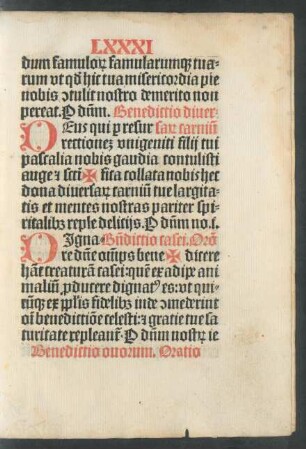 LXXXI
dum famuloꝝ famularumqꝫ tua-
rum vt qd̛ hic tua misericordia pie
nobis ꝯtulit nostro demerito non
pereat. P dn̄m. Benedictio diuer-
DEus qui p resur saꝝ carniū
rectioneꝫ vnigeniti filij tui
pascalia nobis gaudia contulisti
auge ⁊ sct̄i✠fica collata nobis hec
dona diuersaꝝ carniū tue largita-
tis et mentes nostras pariter spi-
ritalibꝰ reple delitijs. P dn̄m no. i.
DIgna- Bn̄dictio casei. Orō
re dn̄e oīp̄s bene✠dicere
hāc creaturam casei: quē ex adipe ani
maliū ꝓducere dignatꝰ es: vt qui-
cūqꝫ ex ipsis fidelibꝫ inde ꝯmederint
oī benedictiōe celesti: ⁊ gratie tue sa
turitate repleant᷑. P dn̄m nostꝝ ie
Benedictio ouorum. Oratio